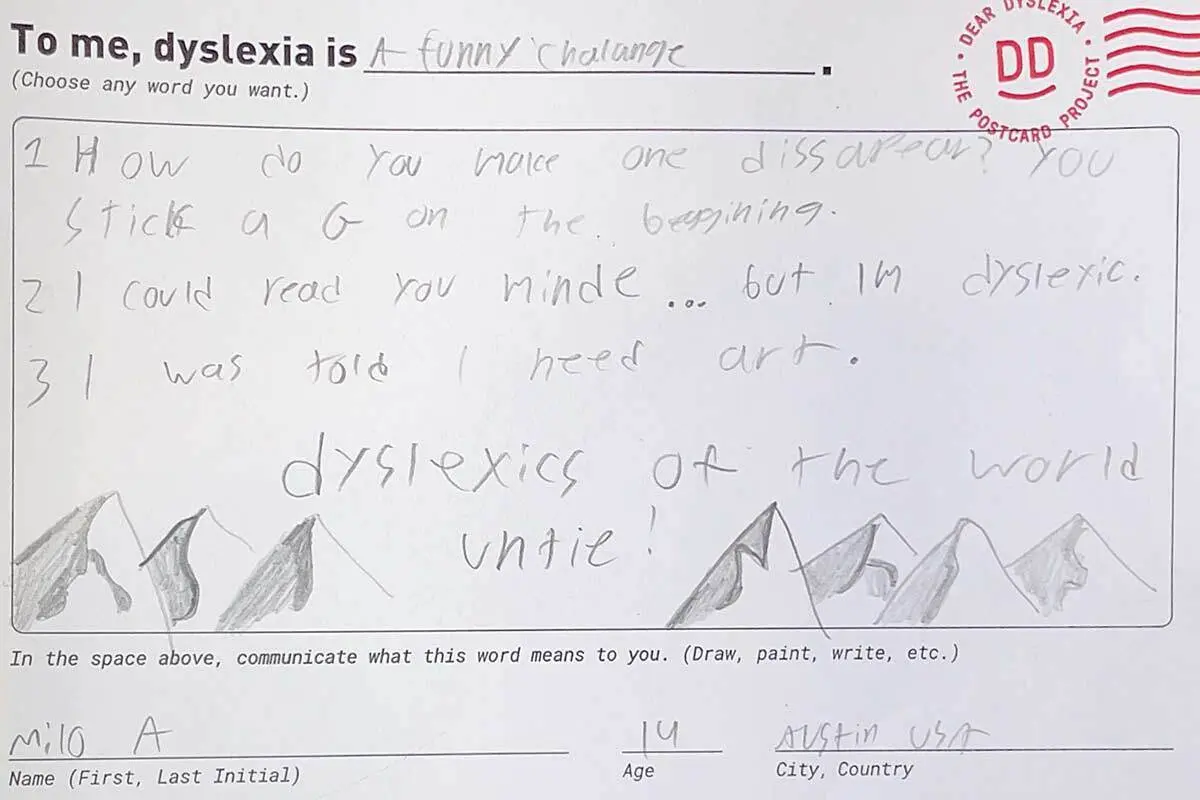 To me, dyslexia is A funny chalange.
(Choose any word you want.)
DEAR DYSLEXIA • THE POSTCARD PROJECT •
DD
1 How do you make one dissapear? You
stick a G on the beggining.
2 I could read you minde ... but Im dyslexic.
3 I was told I need art.
dyslexics of the world
untie!
In the space above, communicate what this word means to you. (Draw, paint, write, etc.)
Milo A 14 Austin USA
Name (First, Last Initial) Age City, Country